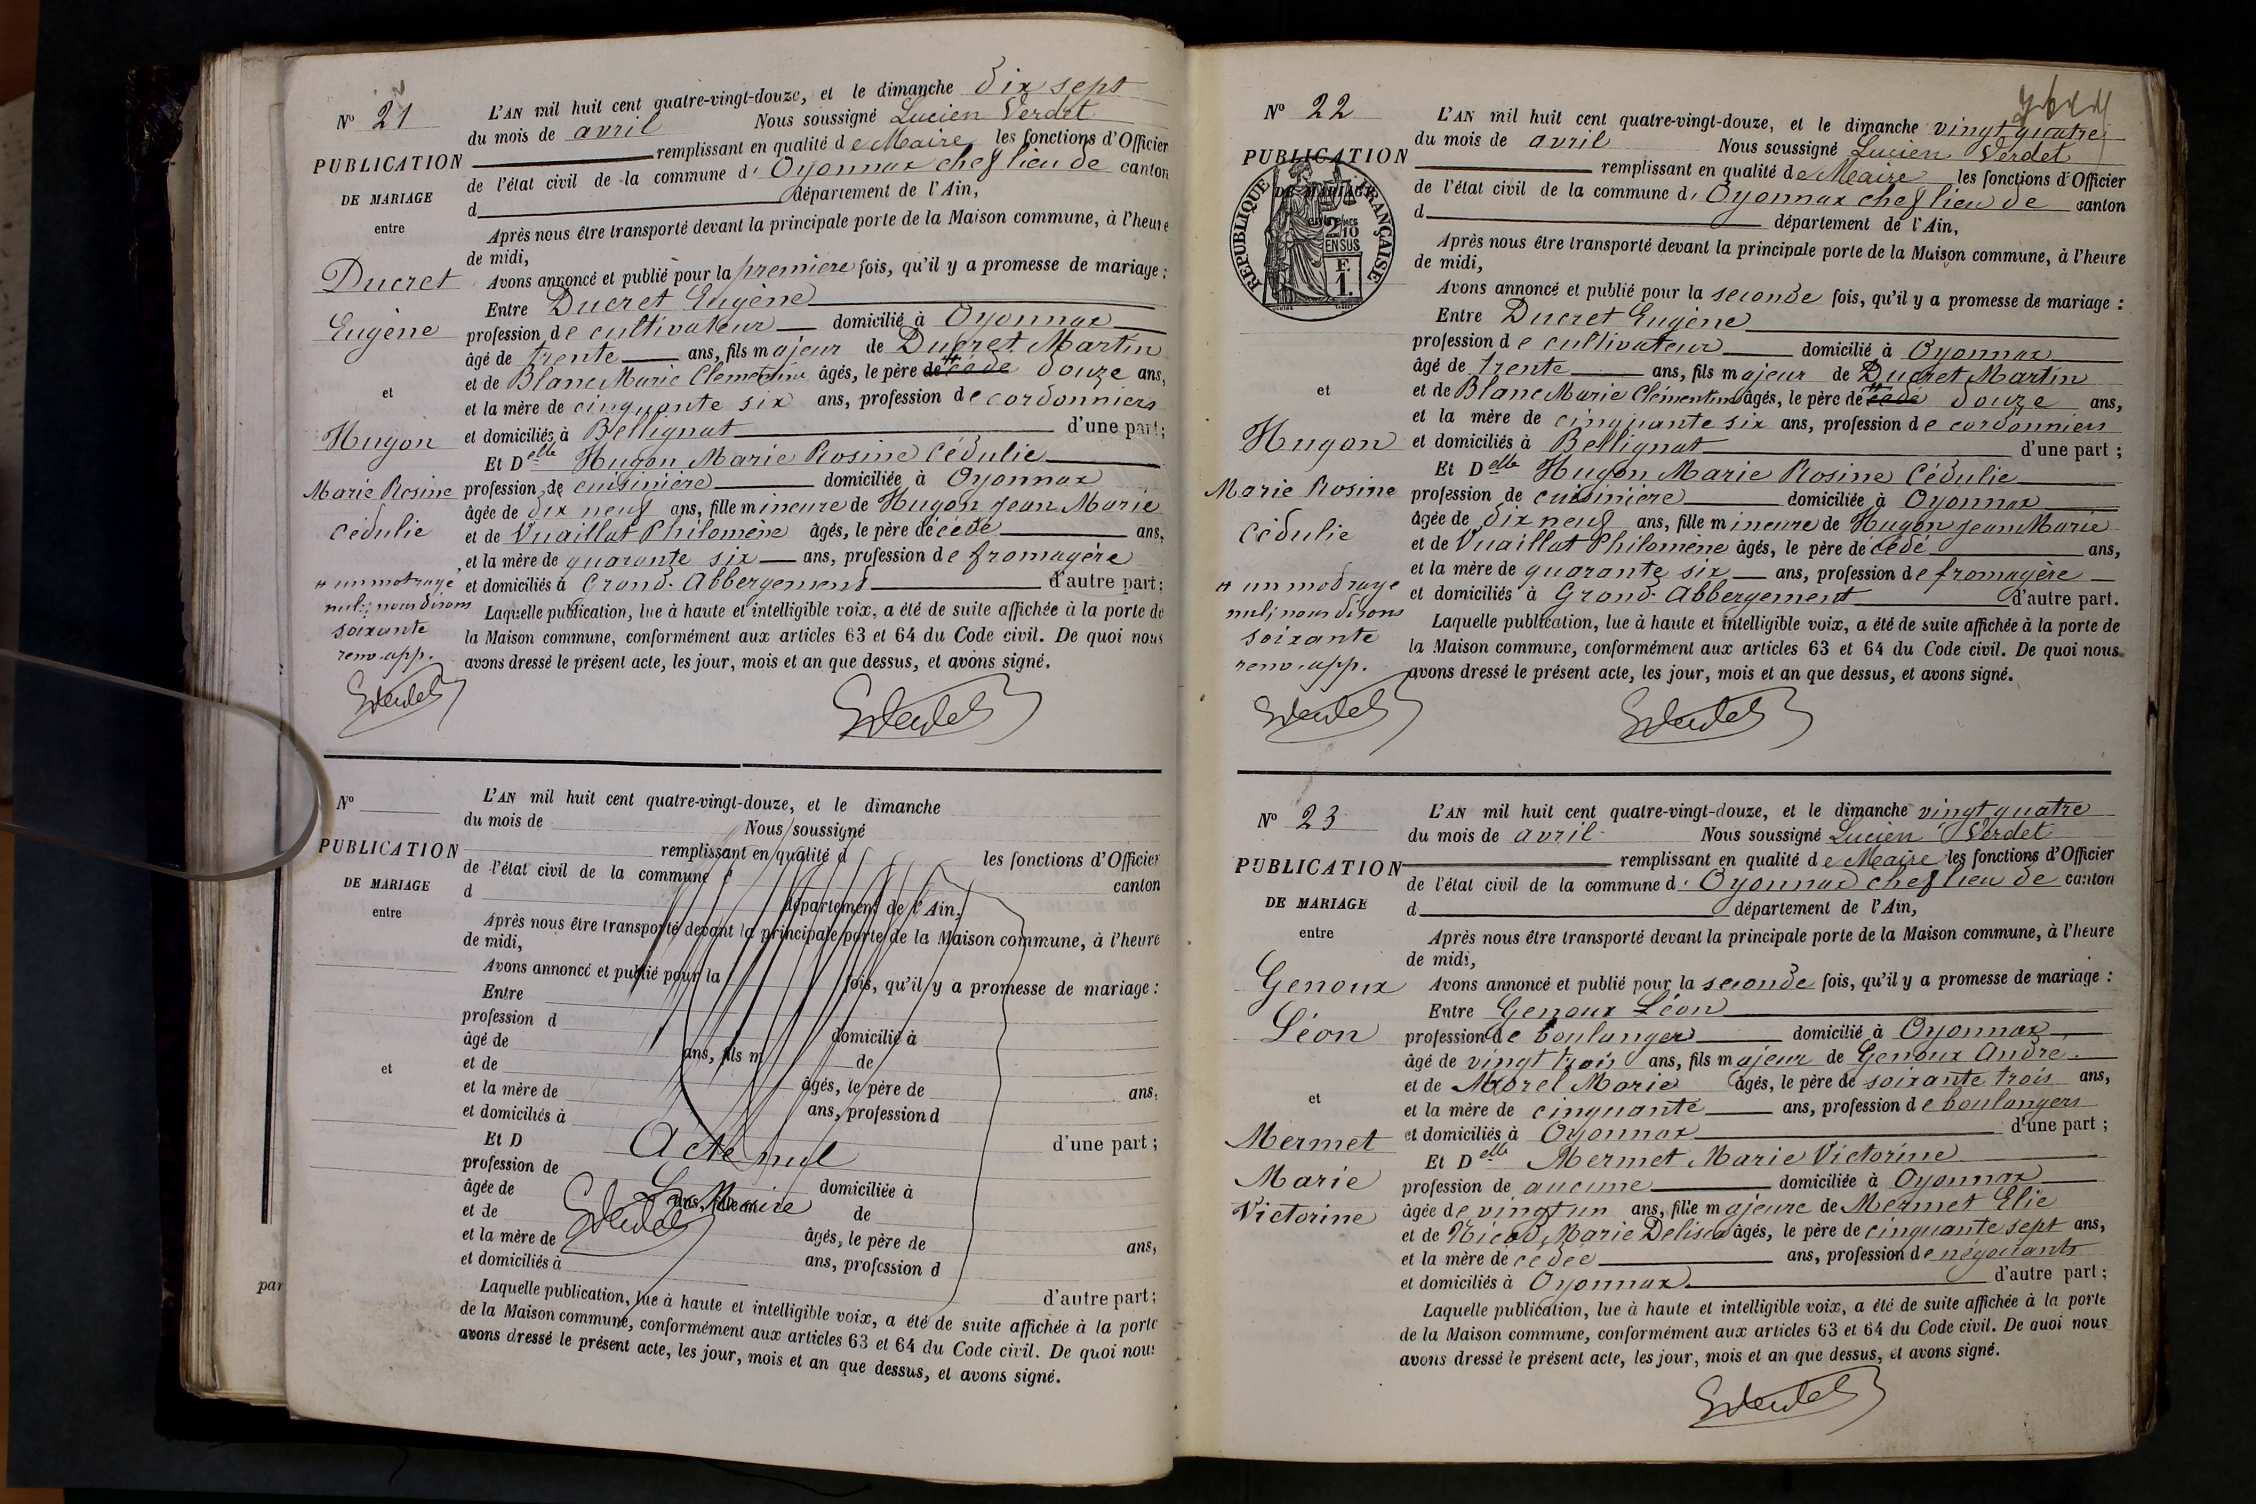 N° 21
PUBLICATION
DE MARIAGE
entre
Ducret
Eugène
et
Hugon
Marie Rosine
Cédulie
# un mot rayé
nul; nous disons
soixante
renv. app.
L'AN mil huit cent quatre-vingt-douze, et le dimanche dix sept
du mois de avril Nous soussigné Lucien Verdet
remplissant en qualité de Maire les fonctions d'Officier
de l'état civil de la commune d' Oyonnax chef lieu de canton
d département de l'Ain,
Après nous être transporté devant la principale porte de la Maison commune, à l'heure
de midi,
Avons annoncé et publié pour la première fois, qu'il y a promesse de mariage :
Entre Ducret Eugène
profession de cultivateur domicilié à Oyonnax
âgé de trente ans, fils majeur de Ducret Martin
et de Blanc Marie Clémentine âgés, le père de # cédé douze ans,
et la mère de cinquante six ans, profession de cordonniers
et domiciliés à Bellignat d'une part;
Et Delle Hugon Marie Rosine Cédulie
profession de cuisinière domiciliée à Oyonnax
âgée de dix neuf ans, fille mineure de Hugon Jean Marie
et de Vuaillat Philomène âgés, le père décédé ans,
et la mère de quarante six ans, profession de fromagère
et domiciliés à Grand-Abbergement d'autre part;
Laquelle publication, lue à haute et intelligible voix, a été de suite affichée à la porte de
la Maison commune, conformément aux articles 63 et 64 du Code civil. De quoi nous
avons dressé le présent acte, les jour, mois et an que dessus, et avons signé.
N°
PUBLICATION
DE MARIAGE
entre
et
L'AN mil huit cent quatre-vingt-douze, et le dimanche
du mois de Nous soussigné
remplissant en qualité d les fonctions d'Officier
de l'état civil de la commune d canton
d département de l'Ain,
Après nous être transporté devant la principale porte de la Maison commune, à l'heure
de midi,
Avons annoncé et publié pour la fois, qu'il y a promesse de mariage :
Entre
profession d domicilié à
âgé de ans, fils m de
et de âgés, le père de ans,
et la mère de ans, profession d
et domiciliés à d'une part ;
Et D
Acte nul
profession de domiciliée à
Le Maire
âgée de ans, fille m de
et de âgés, le père de ans,
et la mère de ans, profession d
et domiciliés à d'autre part;
Laquelle publication, lue à haute et intelligible voix, a été de suite affichée à la porte
de la Maison commune, conformément aux articles 63 et 64 du Code civil. De quoi nous
avons dressé le présent acte, les jour, mois et an que dessus, et avons signé.
par
N° 22
PUBLICATION
DE MARIAGE
RÉPUBLIQUE FRANÇAISE
2/10
EN SUS
F.
1.
et
Hugon
Marie Rosine
Cédulie
# un mot rayé
nul; nous disons
soixante
renv. app.
L'AN mil huit cent quatre-vingt-douze, et le dimanche vingt quatre
du mois de avril Nous soussigné Lucien Verdet
remplissant en qualité de Maire les fonctions d'Officier
de l'état civil de la commune d' Oyonnax chef lieu de canton
d département de l'Ain,
Après nous être transporté devant la principale porte de la Maison commune, à l'heure
de midi,
Avons annoncé et publié pour la seconde fois, qu'il y a promesse de mariage :
Entre Ducret Eugène
profession de cultivateur domicilié à Oyonnax
âgé de trente ans, fils majeur de Ducret Martin
et de Blanc Marie Clémentine âgés, le père de # cédé douze ans,
et la mère de cinquante six ans, profession de cordonniers
et domiciliés à Bellignat d'une part ;
Et Delle Hugon Marie Rosine Cédulie
profession de cuisinière domiciliée à Oyonnax
âgée de dix neuf ans, fille mineure de Hugon Jean Marie
et de Vuaillat Philomène âgés, le père décédé ans,
et la mère de quarante six ans, profession de fromagère
et domiciliés à Grand-Abbergement d'autre part.
Laquelle publication, lue à haute et intelligible voix, a été de suite affichée à la porte de
la Maison commune, conformément aux articles 63 et 64 du Code civil. De quoi nous
avons dressé le présent acte, les jour, mois et an que dessus, et avons signé.
N° 23
PUBLICATION
DE MARIAGE
entre
Genoux
Léon
et
Mermet
Marie
Victorine
L'AN mil huit cent quatre-vingt-douze, et le dimanche vingt quatre
du mois de avril Nous soussigné Lucien Verdet
remplissant en qualité de Maire les fonctions d'Officier
de l'état civil de la commune d' Oyonnax chef lieu de canton
d département de l'Ain,
Après nous être transporté devant la principale porte de la Maison commune, à l'heure
de midi,
Avons annoncé et publié pour la seconde fois, qu'il y a promesse de mariage :
Entre Genoux Léon
profession de boulanger domicilié à Oyonnax
âgé de vingt trois ans, fils majeur de Genoux André
et de Morel Marie âgés, le père de soixante trois ans,
et la mère de cinquante ans, profession de boulangers
et domiciliés à Oyonnax d'une part ;
Et Delle Mermet Marie Victorine
profession de aucune domiciliée à Oyonnax
âgée de vingt un ans, fille majeure de Mermet Elie
et de Nicod Marie Delisca âgés, le père de cinquante sept ans,
et la mère décédée ans, profession de négociants
et domiciliés à Oyonnax d'autre part ;
Laquelle publication, lue à haute et intelligible voix, a été de suite affichée à la porte
de la Maison commune, conformément aux articles 63 et 64 du Code civil. De quoi nous
avons dressé le présent acte, les jour, mois et an que dessus, et avons signé.